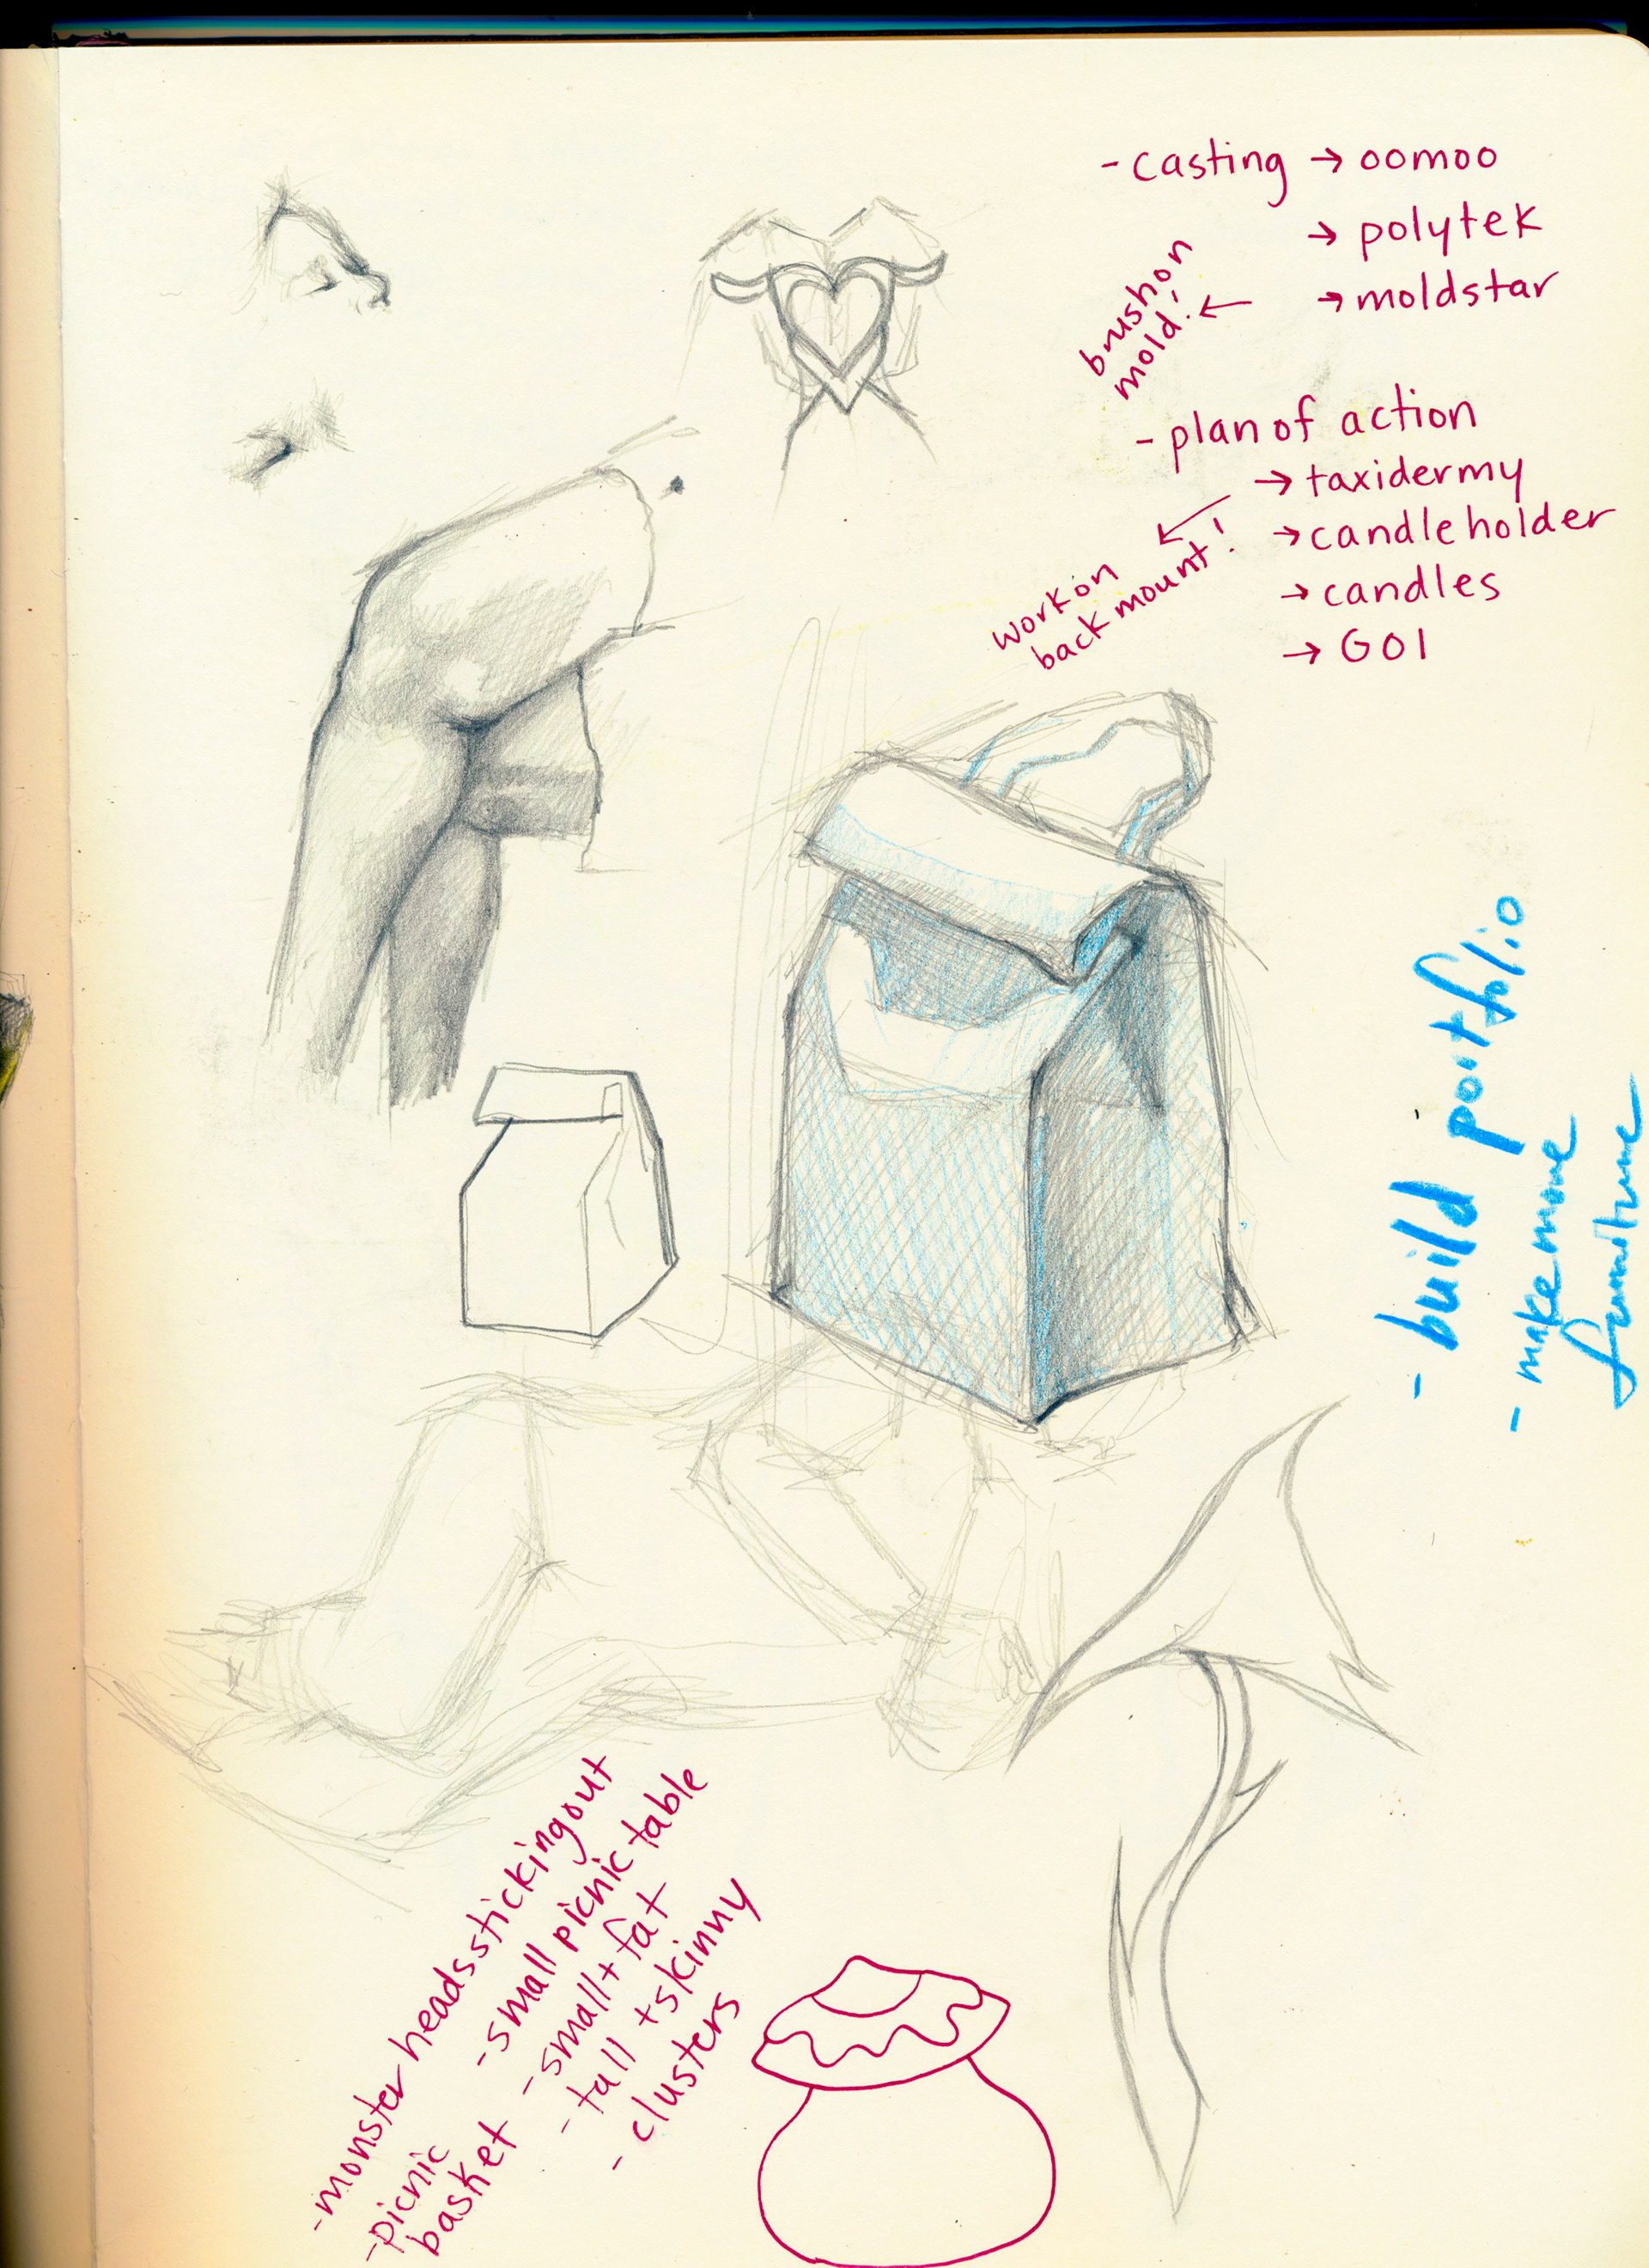 - casting → oomoo
→ polytek
→ moldstar
←
brush on
mold!
- plan of action
→ taxidermy
→ candle holder
→ candles
→ GO!
←
work on
back mount!
- build portfolio
- make more
furniture
- monster heads sticking out
- picnic
basket
- small picnic table
- small + fat
- tall + skinny
- clusters